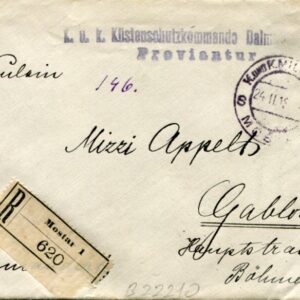 K. u. k. Küstenschutzkommando Dalm
Proviantur
146.
K. und K. MIL
24. II. 1
Mizzi Appelt
Gablo
Hauptstra
Böhm
R
Mostar 1
620